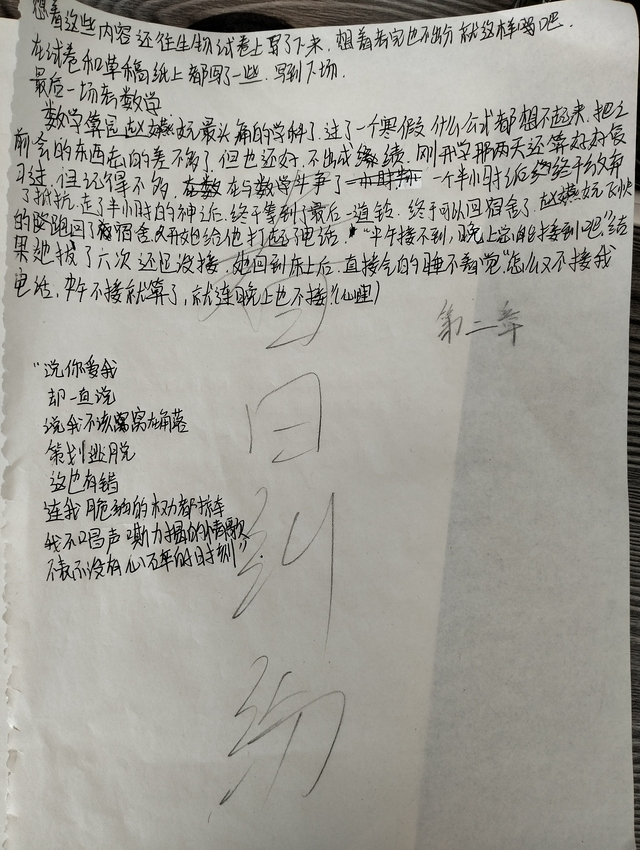 想着这些内容还往生物试卷上写了下来，想着考完也不出分就这样吗吧.
在试卷和草稿纸上都写了一些. 写到下场.
最后一场考数学
数学算是赵嬿妧最头痛的学科了. 过了一个寒假什么公式都想不起来. 把之
前会的东西忘的差不多了. 但也还好. 不出成绩. 刚开学那两天还算好好复
习过，但记得不多. 在与数学斗争了 一个半小时后终于放弃
了抵抗. 走了半小时的神后. 终于等到了最后一道铃. 终于可以回宿舍了. 赵嬿妧飞快
的跑回了宿舍. 开始给他打起了电话. "中午接不到，晚上容易接到吧"结
果她拨了六次还是没接. 她回到床上后. 直接气的睡不着觉."怎么又不接我
电话，中午不接就算了，就连晚上也不接"(心理)
第二章
"说你爱我
却一直说
说我不该窝在角落
策划逃脱
这也有错
连我脆弱的权力都掠夺
我不唱声嘶力揭的情歌
不表示没有心碎的时刻"
日
纠
纷